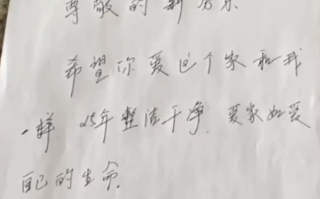 尊敬的新房东
希望你爱这个家和我
一样 25年整洁干净. 爱家如爱
自己的生命.